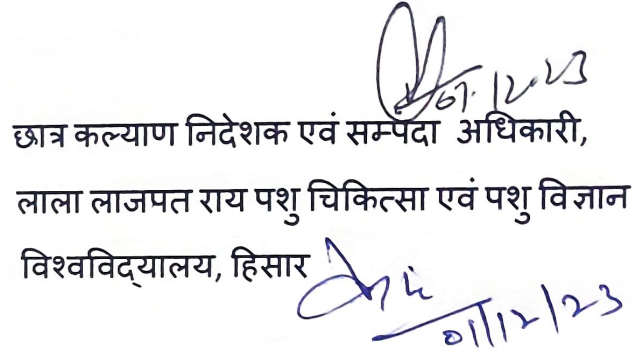 01.12.23
छात्र कल्याण निदेशक एवं सम्पदा अधिकारी,
लाला लाजपत राय पशु चिकित्सा एवं पशु विज्ञान
विश्वविद्यालय, हिसार
01/12/23